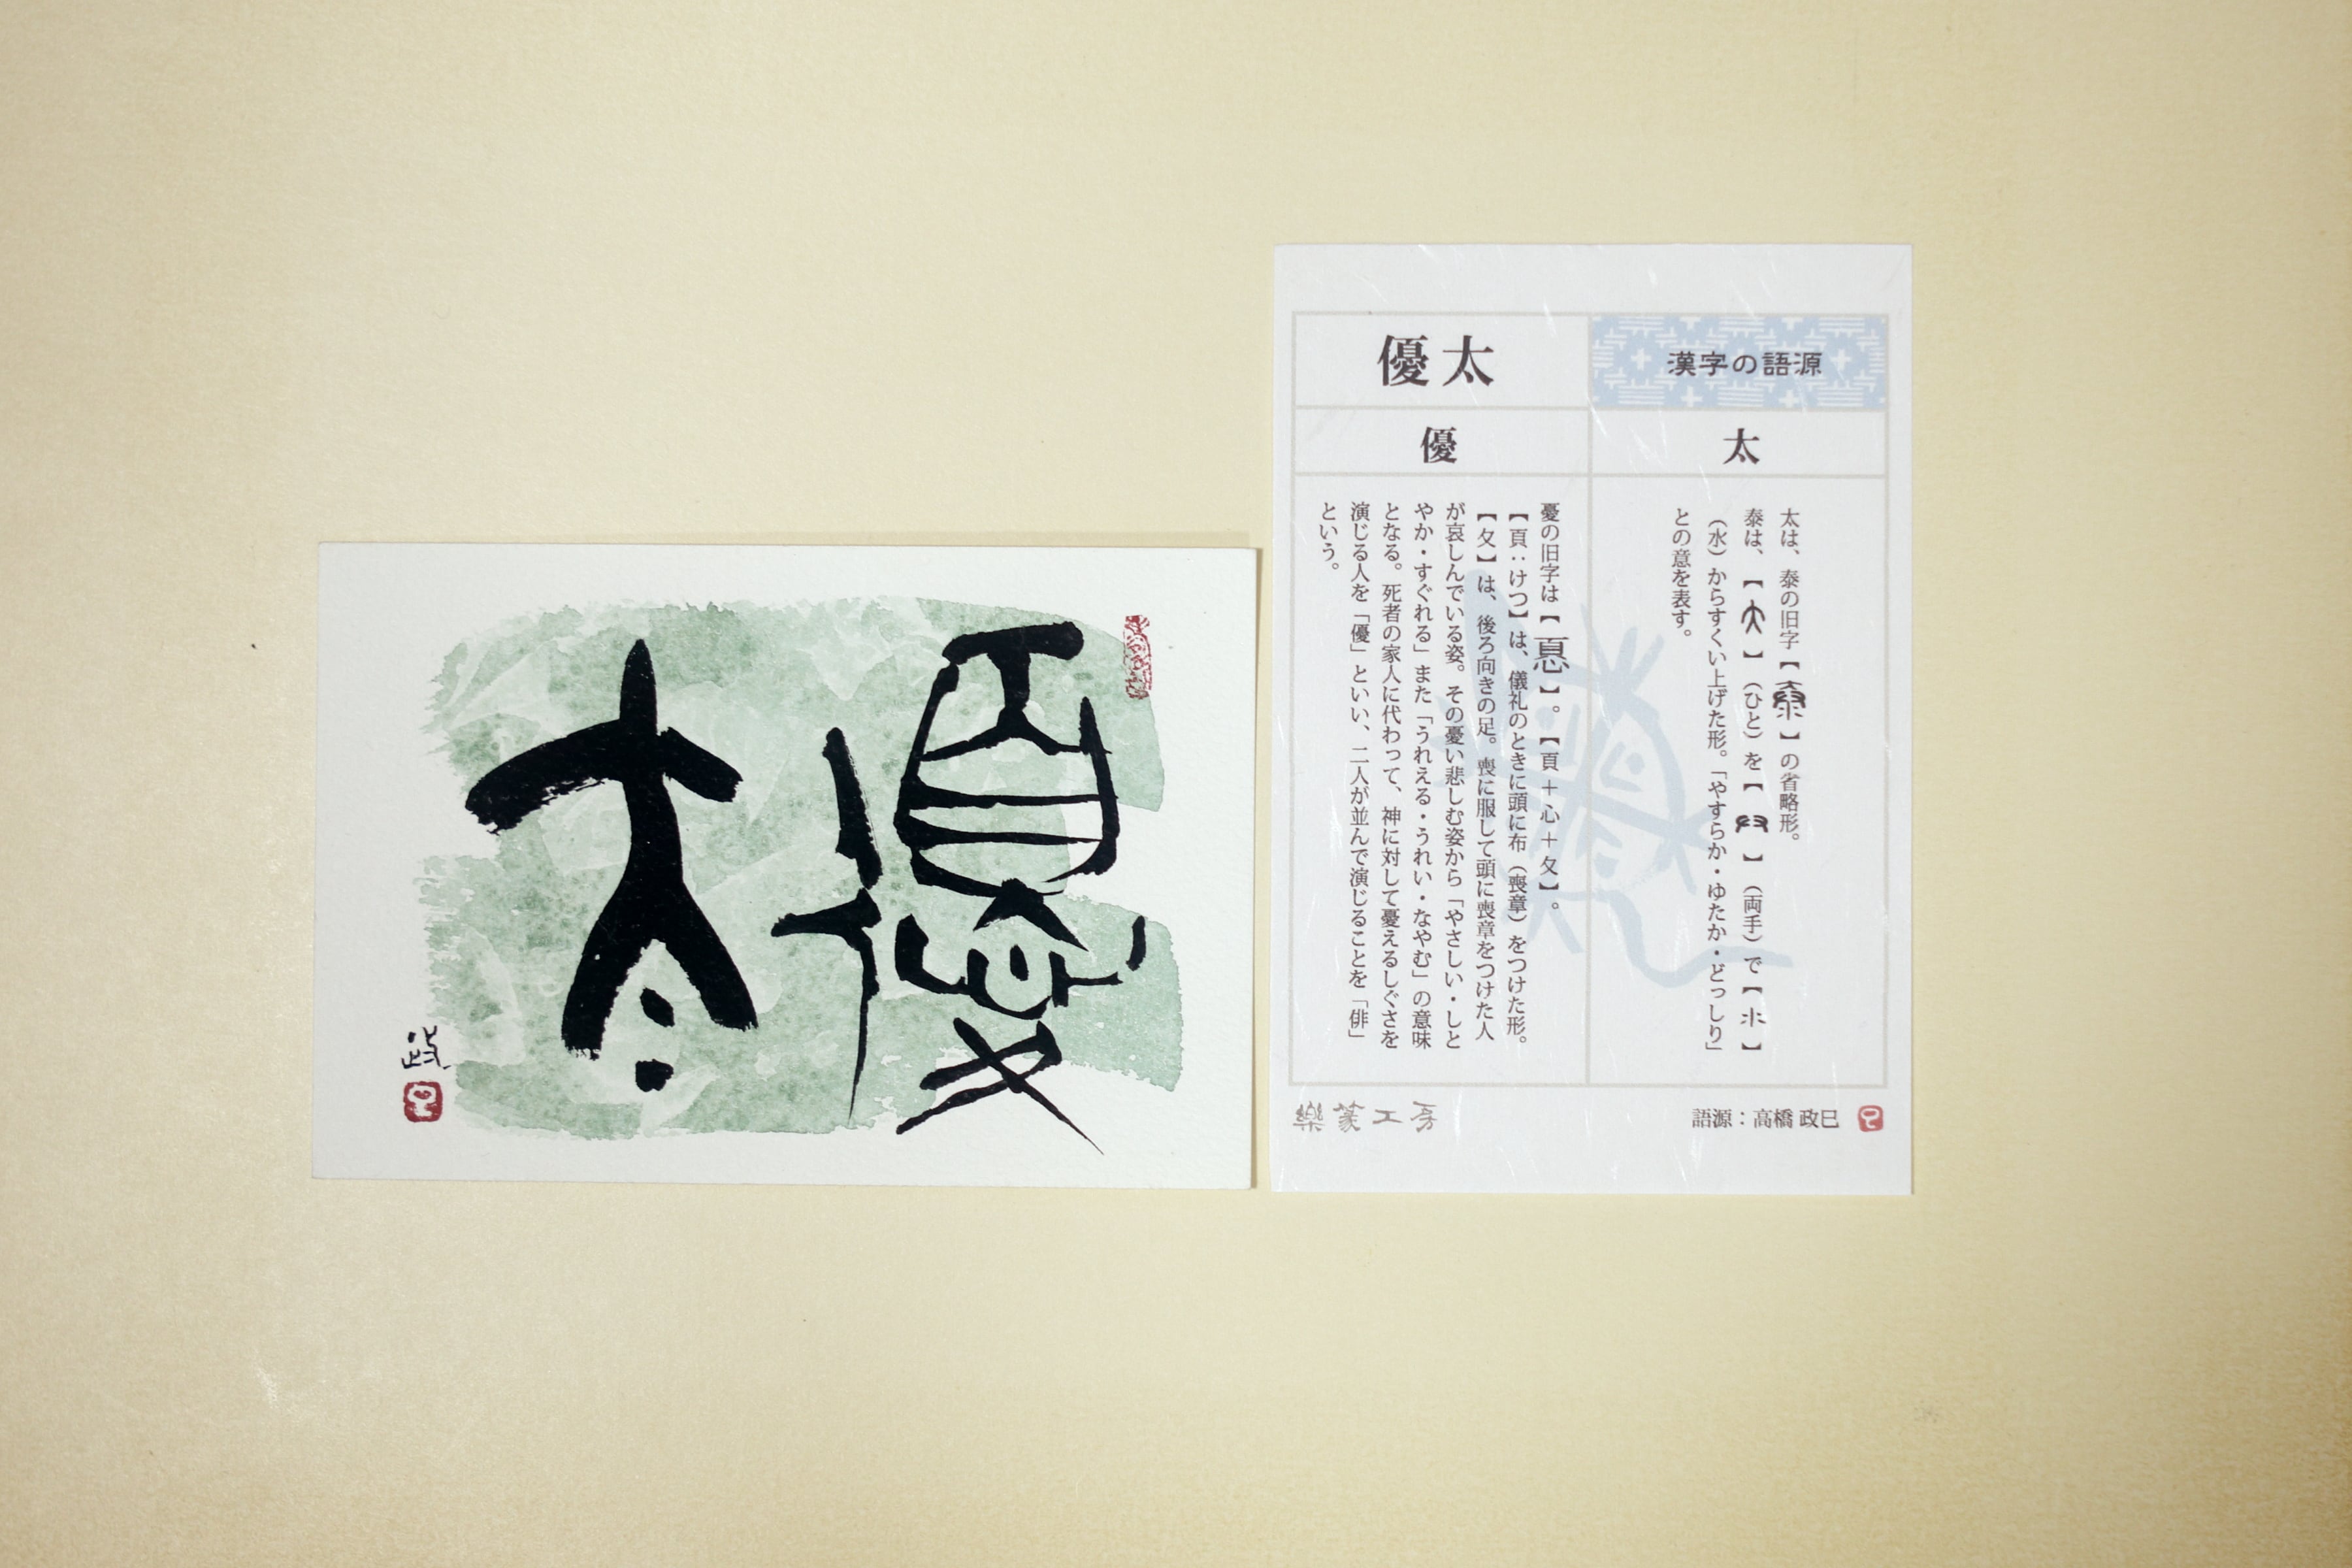 優
太
政
漢字の語源
優太
太
太は、泰の旧字【】の省略形。
泰は、【】(ひと)を【】(両手)で【】
(水)からすくい上げた形。「やすらか・ゆたか・どっしり」
との意を表す。
優
憂の旧字は【】。【頁＋心＋夂】。
【頁：けつ】は、儀礼のときに頭に布(喪章)をつけた形。
【夂】は、後ろ向きの足。喪に服して頭に喪章をつけた人
が哀しんでいる姿。その憂い悲しむ姿から「やさしい・しと
やか・すぐれる」また「うれえる・うれい・なやむ」の意味
となる。死者の家人に代わって、神に対して憂えるしぐさを
演じる人を「優」といい、二人が並んで演じることを「俳」
という。
樂篆工房
語源：高橋 政巳